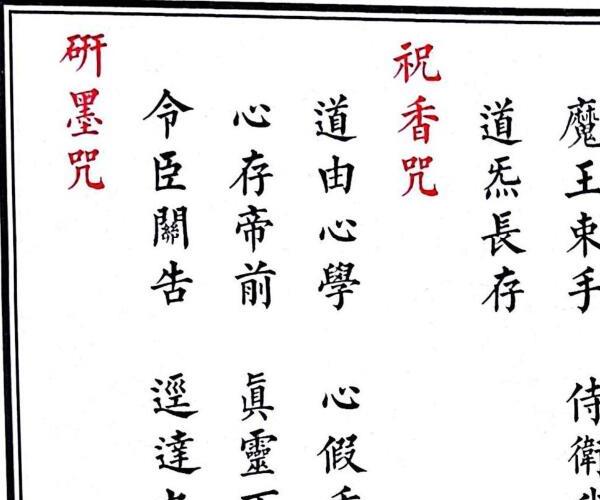 魔王束手 侍衛
道炁長存
祝香咒
道由心學 心假
心存帝前 眞靈
令臣關告 逕達
研墨咒